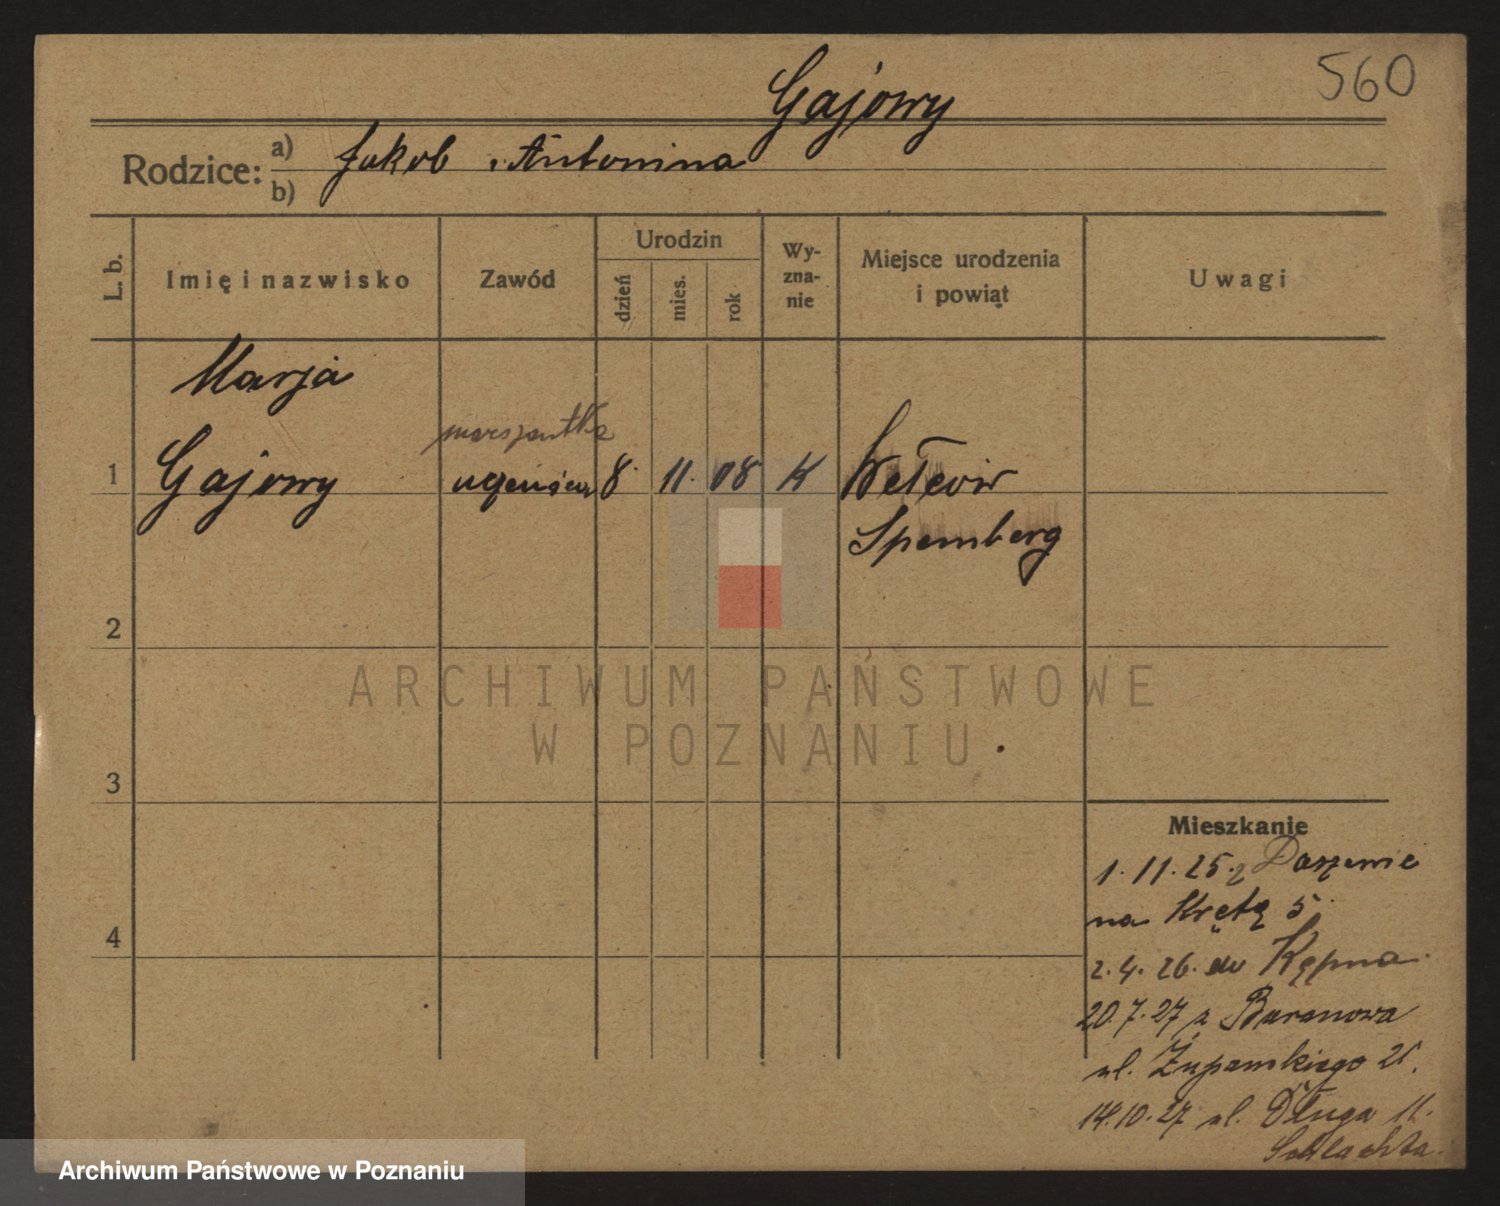 560
Gajowy
Rodzice: a) Jakob i Antonina
b)
L. b.
Imię i nazwisko
Zawód
Urodzin
dzień
mies.
rok
Wy-
zna-
nie
Miejsce urodzenia
i powiąt
Uwagi
Marja
1 Gajowy
uczenica 8. 11. 08 K
Spremberg
2
3
4
Mieszkanie
1.11.25. z
na Krętą 5.
2.4.26. do Kępna.
20.7.27 z Baranowa
ul. Żupanskiego 21.
14.10.27 ul. Długa 11.
ARCHIWUM PAŃSTWOWE
W POZNANIU
Archiwum Państwowe w Poznaniu